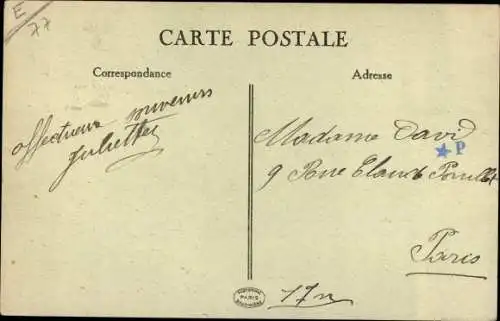 E
77
CARTE POSTALE
Correspondance
Adresse
affectueux souvenirs
Juliette
Madame David
★ P
9 Rue Claude Pouillet
Paris
PARIS
17e